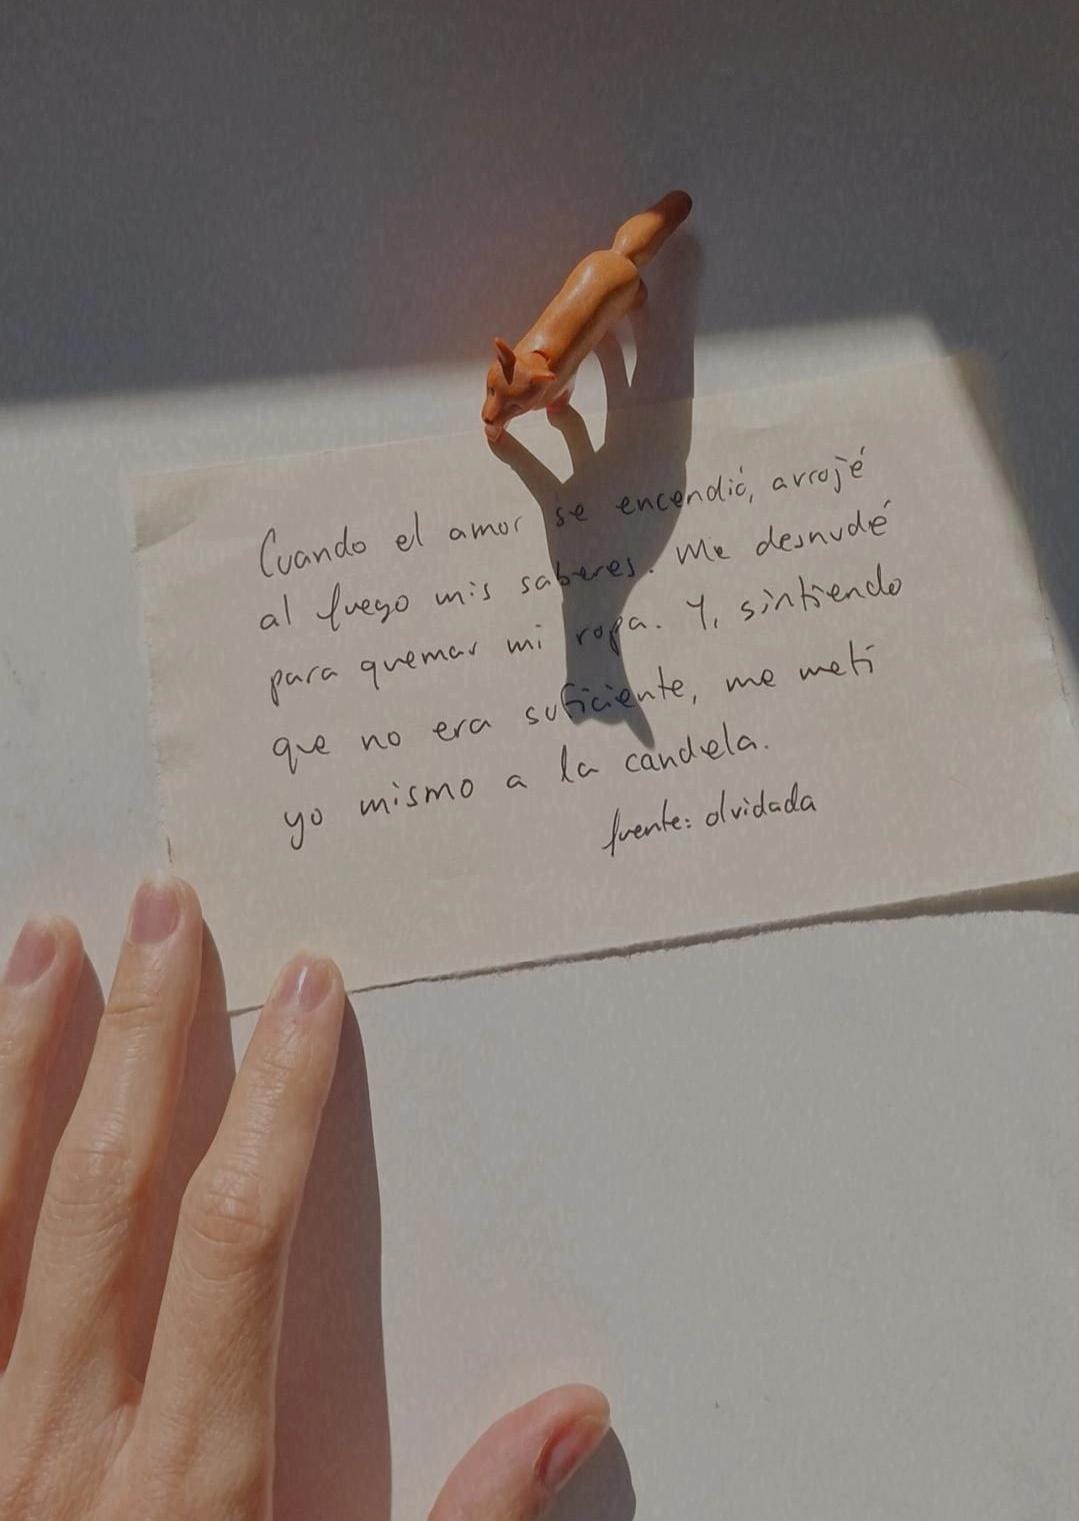 Cuando el amor se encendió, arrojé
al fuego mis saberes. Me desnudé
para quemar mi ropa. Y, sintiendo
que no era suficiente, me metí
yo mismo a la candela.
fuente: olvidada